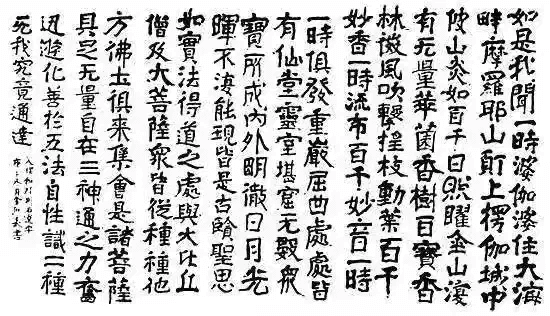 如是我聞一時婆伽婆住大海
畔摩羅耶山頂上楞伽城中
彼山炎如百千日照曜金山復
有无量華園香樹百寶香
林微風吹擊搖枝動葉百千
妙香一時流布百千妙音一時
一時俱發重巖屈曲處處皆
有仙堂靈室堪窟无數衆
寶所成內外明徹日月光
暉不復能現皆是古賢聖思
如實法得道之處與大比丘
僧及大菩薩衆皆從種種他
方佛土俱來集會是諸菩薩
具足无量自在三神通之力奮
迅遊化善於五法自性識二種
无我究竟通達